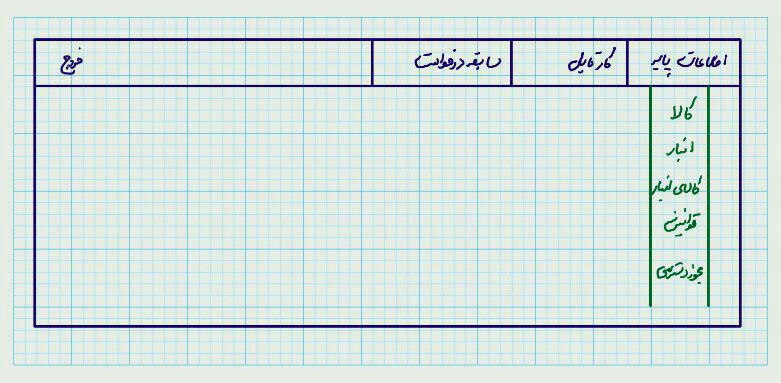 اطلاعات پایه کارتابل سابقه درخواست خروج
کالا
انبار
کالای انبار
قوانین
مجوز دسترسی